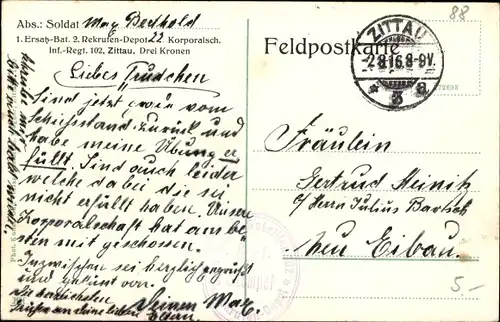 Abs.: Soldat Max Berthold
1. Ersatz-Bat. 2. Rekruten-Depot 22 Korporalsch.
Inf.-Regt. 102, Zittau, Drei Kronen
88
Feldpostkarte
ZITTAU
2.8.16.8-9V.
* 3 a
Liebes Trudchen
Sind jetzt vom
Schießstand zurück und
habe meine Übung er
füllt. Sind auch leider
welche dabei die sie
nicht erfüllt haben. Unsere
Korporalschaft hat am be
sten mit geschossen.
Inzwischen sei herzlich gegrüßt
und geküßt von
Deinen Max.
Fräulein
Gertrud Heinitz
c/o Herrn Julius Bartsch
Neu Eibau.
5.-